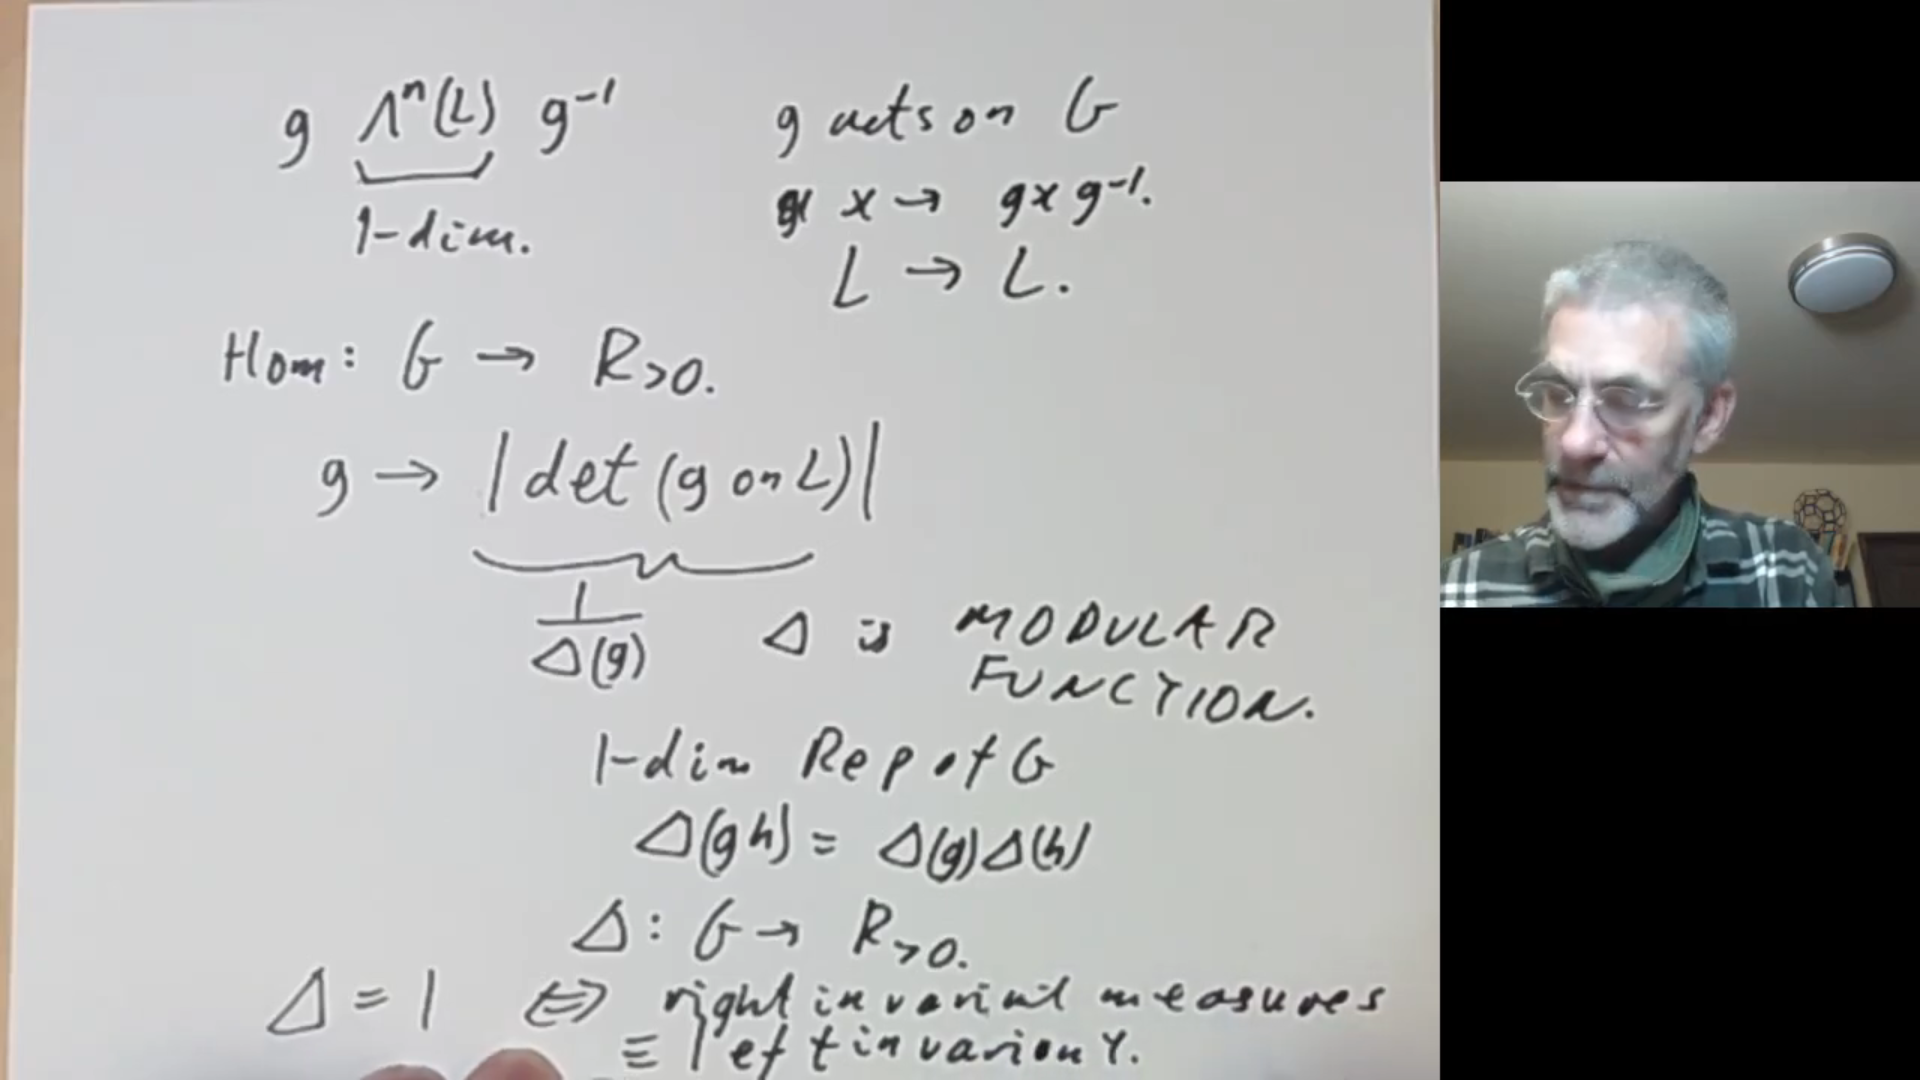 g Λⁿ(L) g⁻¹
1-dim.
g acts on G
x → gxg⁻¹.
L → L.
Hom: G → R>0.
g → |det(g on L)|
1/Δ(g)
Δ is MODULAR
FUNCTION.
1-dim Rep of G
Δ(gh) = Δ(g)Δ(h)
Δ: G → R>0.
Δ = 1 ⇔ right invariant measures
≡ left invariant.